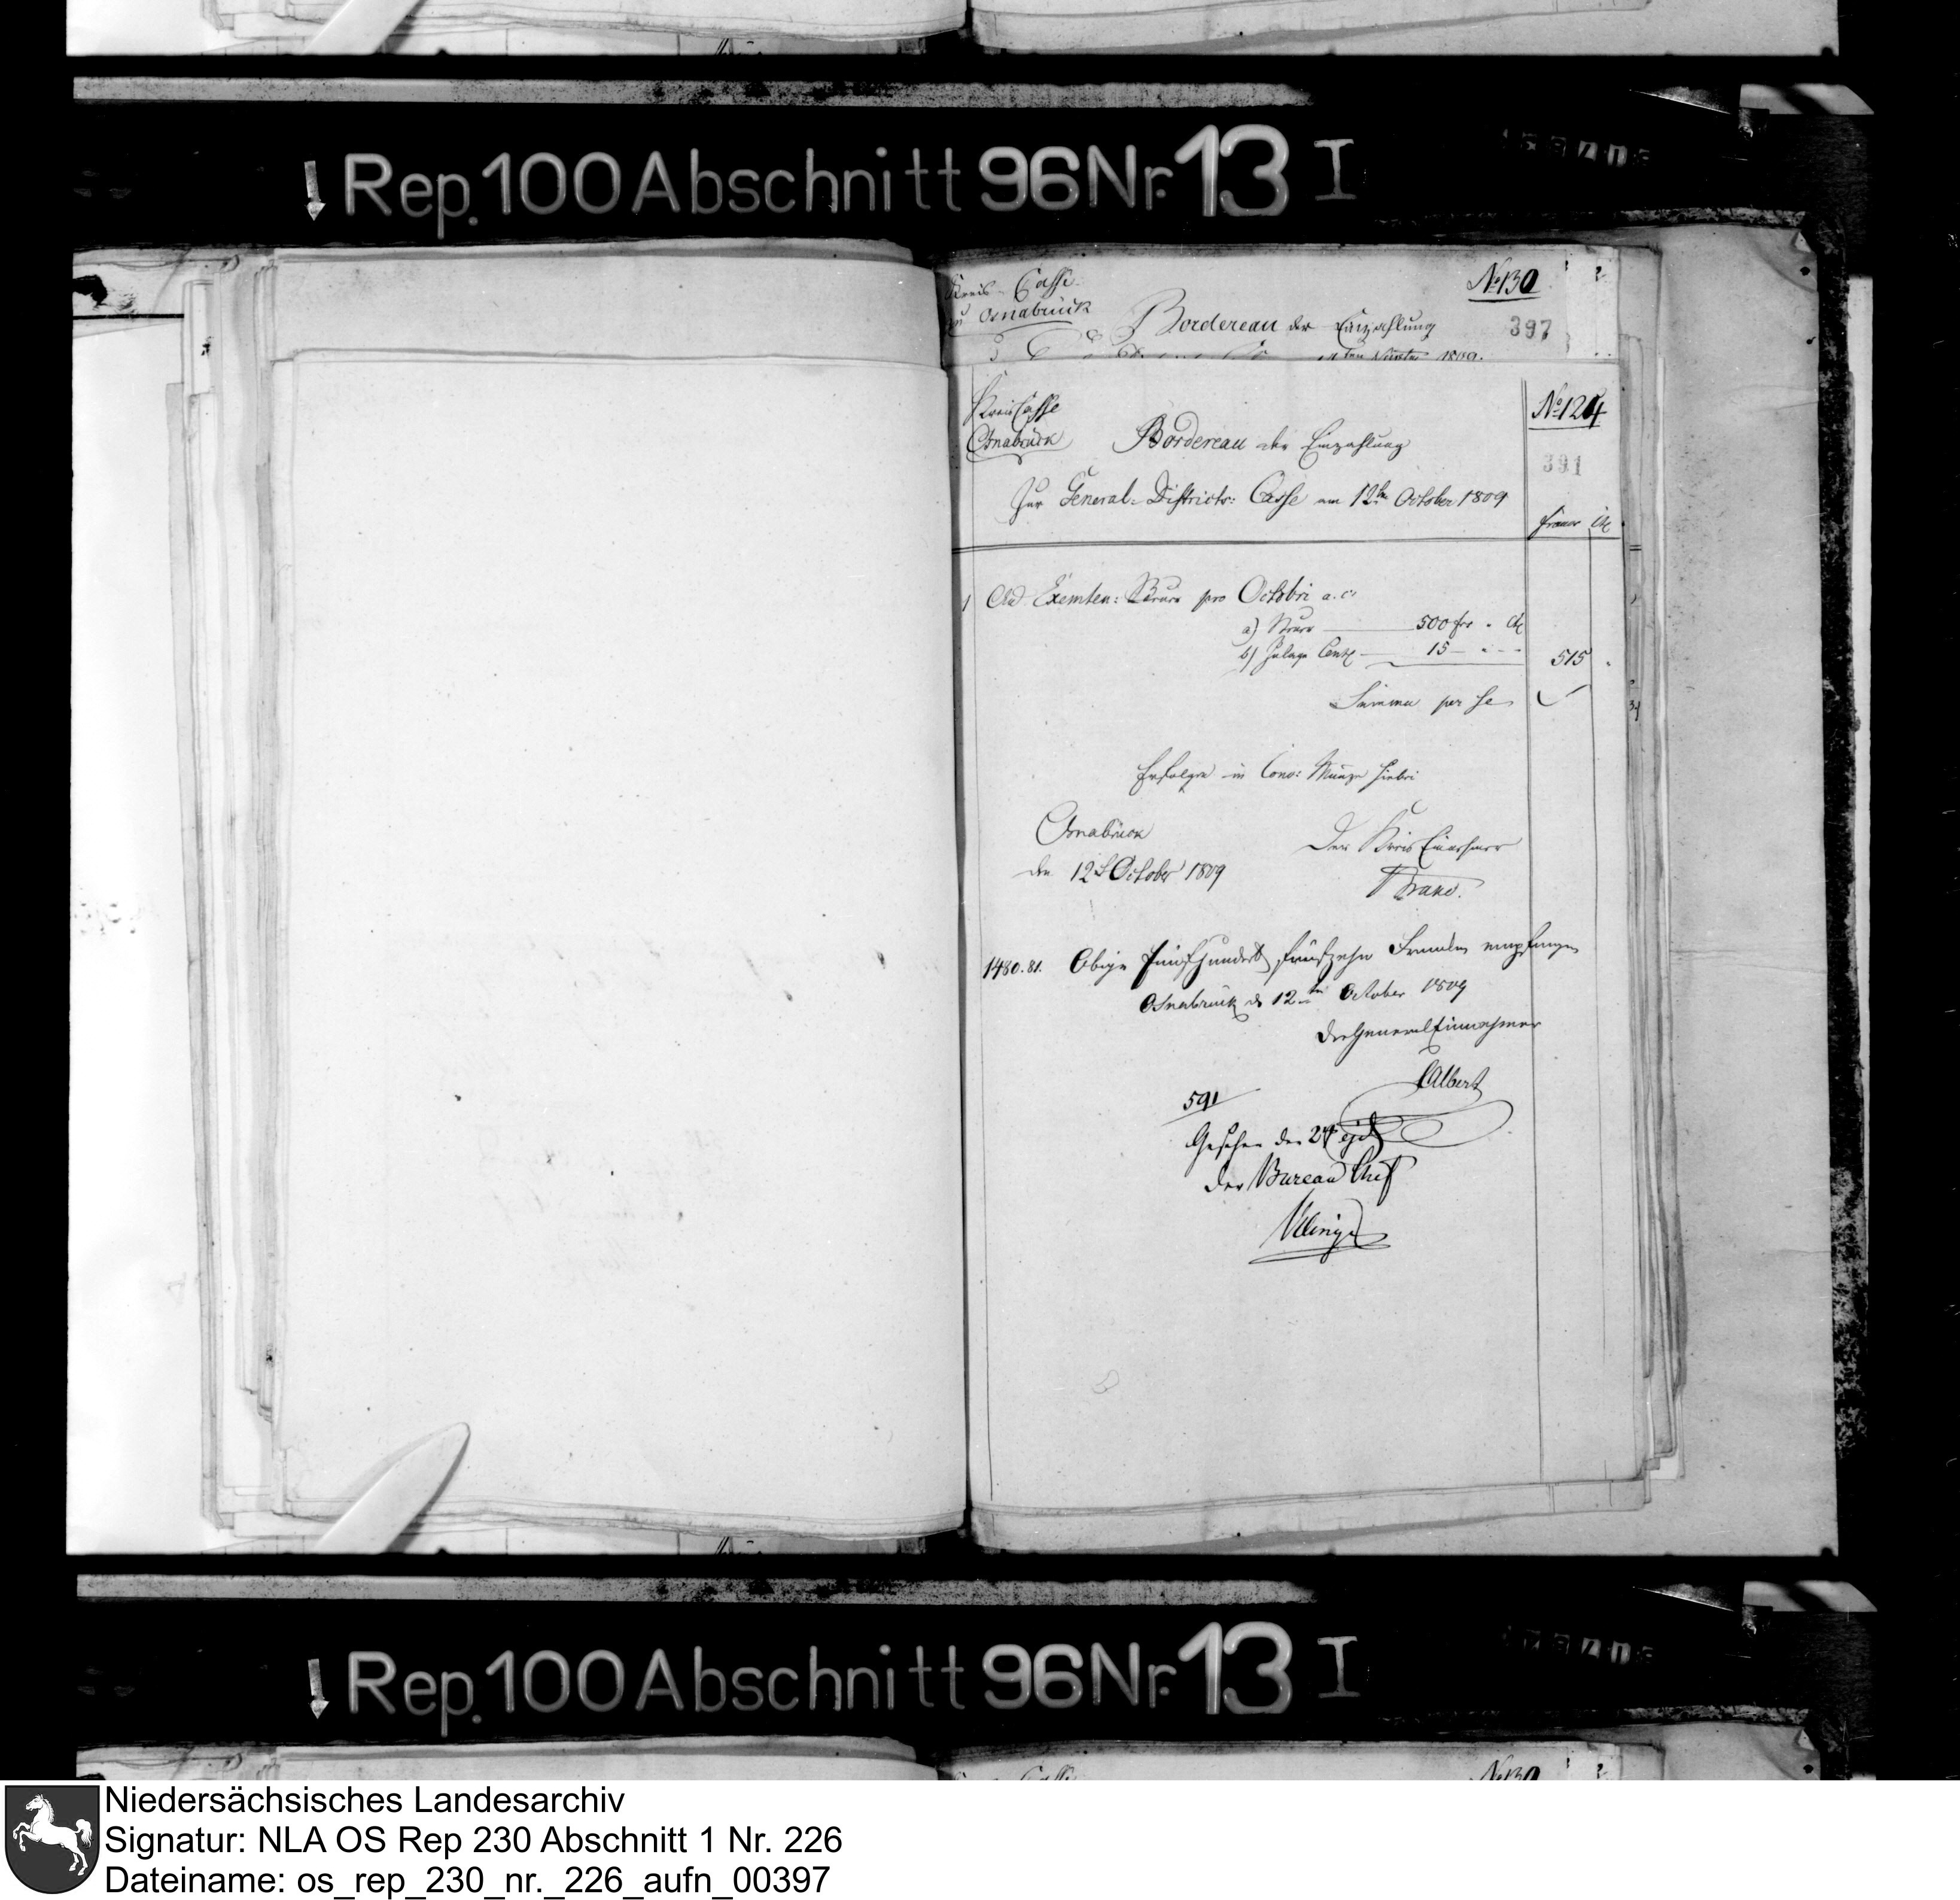 Rep. 100 Abschnitt 96 Nr. 13 I
Kreis-Casse
zu Osnabrück
No 130
Bordereau der Einzahlung
397
ten 1809.
KreisCasse
Osnabrück
No 124
Bordereau der Einzahlung
391
Zur General-Districts-Casse am 12ten October 1809
Francs Ct
1 An Exemten-Steuer pro Octobri a. c.
a) Steuer 500 frc - Ct
b) Zulage Cent 15 - - -
515 -
Summa per se
Erfolgen in Conv: Münze hiebei
Osnabrück
den 12t October 1809
Der Kreis Einnehmer
1480.81. Obige Fünfhundert fünfzehn Franken empfangen
Osnabrück d 12ten October 1809
Der General Einnehmer
Albert
591
Gesehen den 24 ejd
Der Bureau Chef
Rep. 100 Abschnitt 96 Nr. 13 I
No 130
Niedersächsisches Landesarchiv
Signatur: NLA OS Rep 230 Abschnitt 1 Nr. 226
Dateiname: os_rep_230_nr._226_aufn_00397